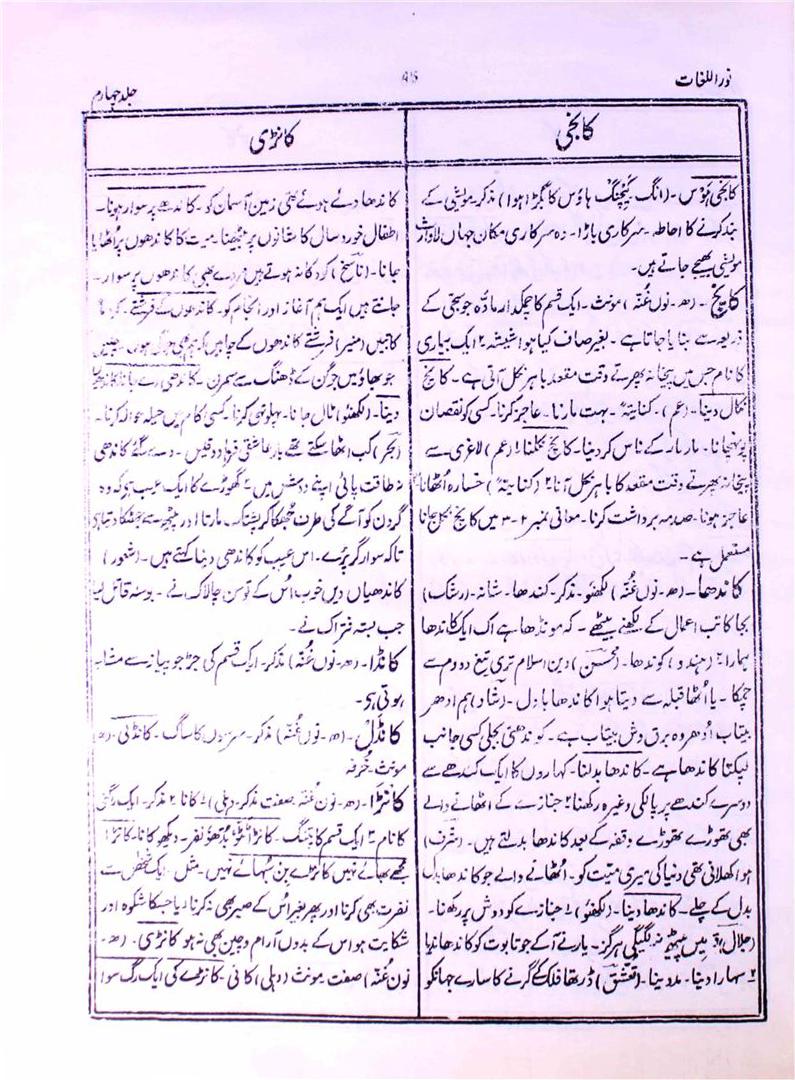 نور اللغات
46
جلد چہارم
کانجی
کانڑی
کانجی ہَوس۔ (انگ کیچنگ ہاؤس کا بگڑا ہوا) مذکر مویشی کے
بند کرنے کا احاطہ۔ سرکاری باڑا۔ وہ سرکاری مکان جہاں لاوارث
مویشی بھیجے جاتے ہیں۔
کانچ۔ (ھ۔ نون غُنّہ) مونث۔ ایک قسم کا چمکدار مادّہ جو سجی کے
ذریعہ سے بنایا جاتا ہے۔ بغیر صاف کیا ہوا شیشہ ۲ ایک بیماری
کا نام جس میں پیخانہ پھرتے وقت مقعد باہر نکل آتی ہے۔ کانچ
نکال دینا۔ (عم)۔ کنایتہً۔ بہت مارنا۔ عاجز کرنا۔ کسی کو نقصان
پہنچانا۔ مار مار کے ناس کر دینا۔ کانچ نکلنا! (عم) لاغری سے
پیخانہ پھرتے وقت مقعد کا باہر نکل آنا ۲ (کنایتہً) خسارہ اُٹھانا
عاجز ہونا۔ صدمہ برداشت کرنا۔ معانی نمبر ۲-۳ میں کانچ نکل جانا
مستعمل ہے۔
کاندھا۔ (ھ۔ نون غُنّہ) لکھنؤ۔ مذکر۔ کندھا۔ شانہ۔ (رشک)
بجا کاتب اعمال کے لکھنے بیٹھے۔ کہ مونڈھا ہے اک ایک کاندھا
ہمارا ۲ (ہندو) کوندھا۔ (محسن) دین اسلام تری تیغ دو دم سے
چمکا۔ یا اُٹھا قبلہ سے دیتا ہوا کاندھا بادل۔ (شاد) ہم ادھر
بیتاب اُدھر وہ برق وش بیتاب ہے۔ کوندھتی بجلی کسی جانب
لپکتا کاندھا ہے۔ کاندھا بدلنا۔ کہاروں کا ایک کندھے سے
دوسرے کندھے پر پالکی وغیرہ رکھنا ۲ جنازے کے اٹھانے والے
بھی تھوڑے تھوڑے وقفہ کے بعد کاندھا بدلتے ہیں۔ (شرف)
ہوا کھلانی تھی دنیا کی میری میّت کو۔ اُٹھانے والے جو کاندھا بدل
بدل کے چلے۔ کاندھا دینا۔ (لکھنؤ) ۱ جنازے کو دوش پر رکھنا۔
(جلال) میں بیٹھے نہ لگیگی ہرگز۔ یار نے آ کے جو تابوت کو کاندھا نہ دیا
۲ سہارا دینا۔ مدد دینا۔ (تعشق) ڈر تھا فلک کے گرنے کا سارے جہان کو
کاندھا دئے ہوئے تھی زمین آسمان کو۔ کاندھے پر سوار ہونا۔
اطفال خورد سال کا شانوں پر بیٹھنا۔ میت کا کاندھوں پر اُٹھایا
جانا۔ (ناسخ) کودکانہ ہوتے ہیں مردے بھی کاندھوں پر سوار۔
جانتے ہیں ایک ہم آغاز اور انجام کو۔ کاندھوں کے فرشتے۔ کراماً
کاتبین (منیر) فرشتے کاندھوں کے چاہیں کہ
جو بھاؤ میں جوگن کے ڈھنگ سے سمرن۔ کاندھی دے جانا کاندھی
دینا۔ (لکھنؤ) ٹال جانا۔ پہلو تہی کرنا۔ کسی کام میں حیلہ حوالہ کرنا۔
(بحر) کب اٹھا سکتے تھے بار عاشقی فرہاد و قیس۔ دے گئے کاندھی
نہ طاقت پائی اپنے دوش میں ۲ گھوڑے کا ایک عیب ہے کہ وہ
گردن کو آگے کی طرف جھکا کر پشتک مارتا اور پیٹھ سے جھٹکا دیتا ہے
تاکہ سوار گر پڑے۔ اس عیب کو کاندھی دینا کہتے ہیں۔ (شعور)
کاندھیاں دیں خوب اُس کے توسن چالاک نے۔ بوسہ قاتل لیا
جب بستہ فتراک نے۔
کانڈا۔ (ھ۔ نون غُنّہ) مذکر۔ ایک قسم کی جڑ جو پیاز سے مشابہ
ہوتی ہے۔
کانڈل۔ (ھ۔ نون غُنّہ) مذکر۔ سرسوں کا ساگ۔ کانڈنی۔ (ھ)
مونث۔ خُرفہ
کانڑا۔ (ھ۔ نون غُنّہ صفت مذکر۔ دہلی) ۱ کانا ۲ مذکر۔ ایک راگنی
کا نام ۳ ایک قسم کا پتنگ۔ کانڑا ٹٹو بُدّھو نفر۔ دیکھو کانا۔ کانڑا
مجھے بھائے نہیں کانڑے بن سُہائے نہیں۔ مثل۔ ایک شخص سے
نفرت بھی کرنا اور پھر بغیر اُس کے صبر بھی نہ کرنا۔ یا جسکا شکوہ اور
شکایت ہو اس کے بدوں آرام و چین بھی نہ ہو کانڑی۔ (ھ۔
نون غُنّہ) صفت مونث (دہلی) کانی۔ کانڑے کی ایک رگ سوا